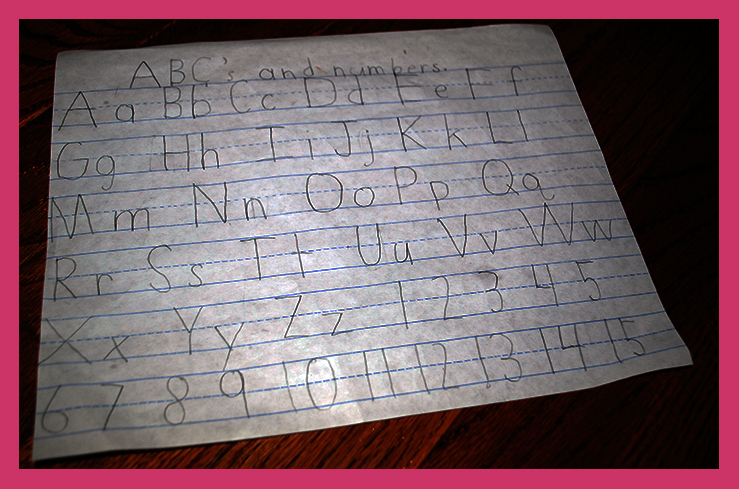 ABC's and numbers.
Aa Bb Cc Dd Ee Ff
Gg Hh Ii Jj Kk Ll
Mm Nn Oo Pp Qq
Rr Ss Tt Uu Vv Ww
Xx Yy Zz 1 2 3 4 5
6 7 8 9 10 11 12 13 14 15